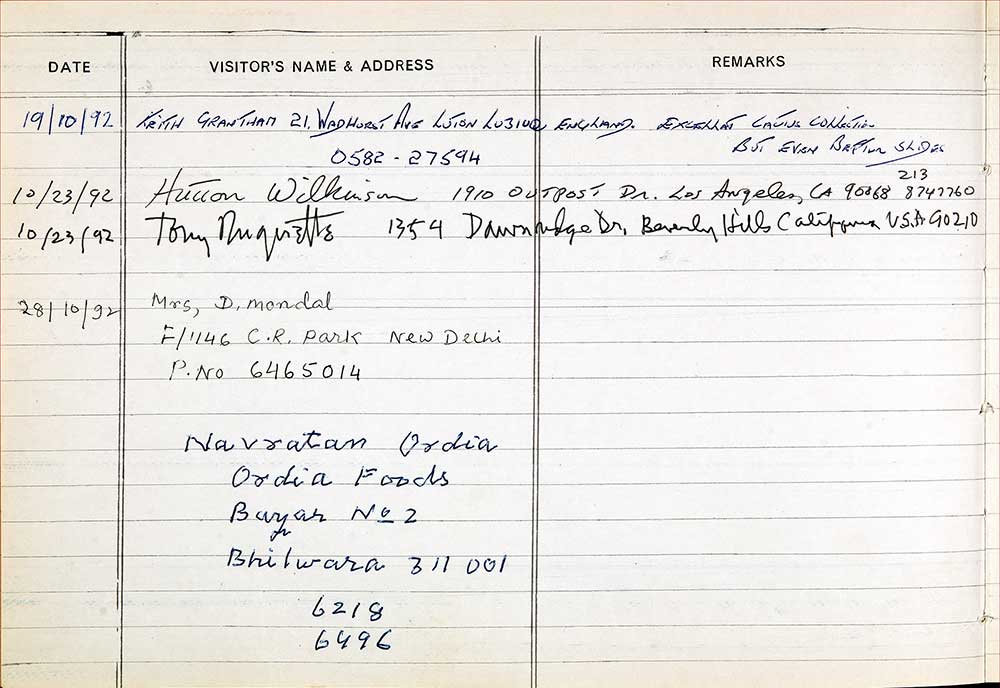 DATE VISITOR'S NAME & ADDRESS REMARKS
19/10/92 KEITH GRANTHAM 21, WADHURST AVE LUTON ENGLAND. EXCELLENT CACTUS COLLECTION
0582 - 27594 BUT EVEN BETTER SLIDES
213
10/23/92 Hutton Wilkinson 1910 OUTPOST Dr. Los Angeles, CA 90068 8747760
10/23/92 Tony Duquette 1354 Dawnridge Dr, Beverly Hills California U.S.A 90210
28/10/92 Mrs, D. mondal
F/1146 C.R. Park New Delhi
P.No 6465014
Navratan Ordia
Ordia Foods
No 2
Bhilwara 311 001
6218
6496